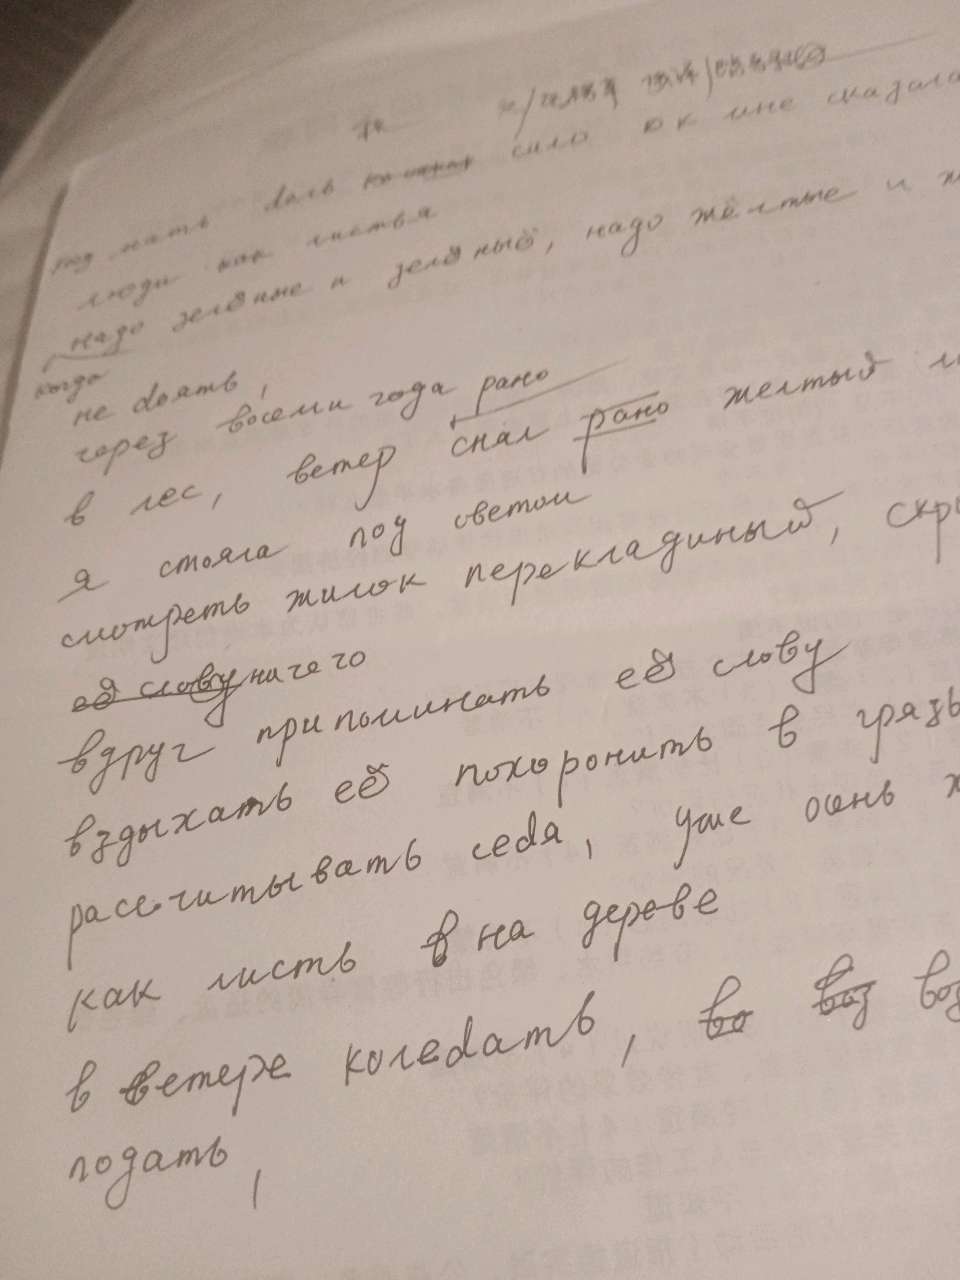 мать дать сило юк мне сказала
люди как листья
надо зелёные и зелёные, надо жёлтые и ж
когда
не dоять,
через восеми года рано
в лес, ветер спал рано желтый ли
я стояла под светом
смотреть жилок перекладиный, скр
её слову ничего
вдруг припоминать её слову
вздыхать её похоронить в грязь
рассчитывать себя, уже очень ж
как листь в на дереве
в ветере коледать, во воз воз
подать,